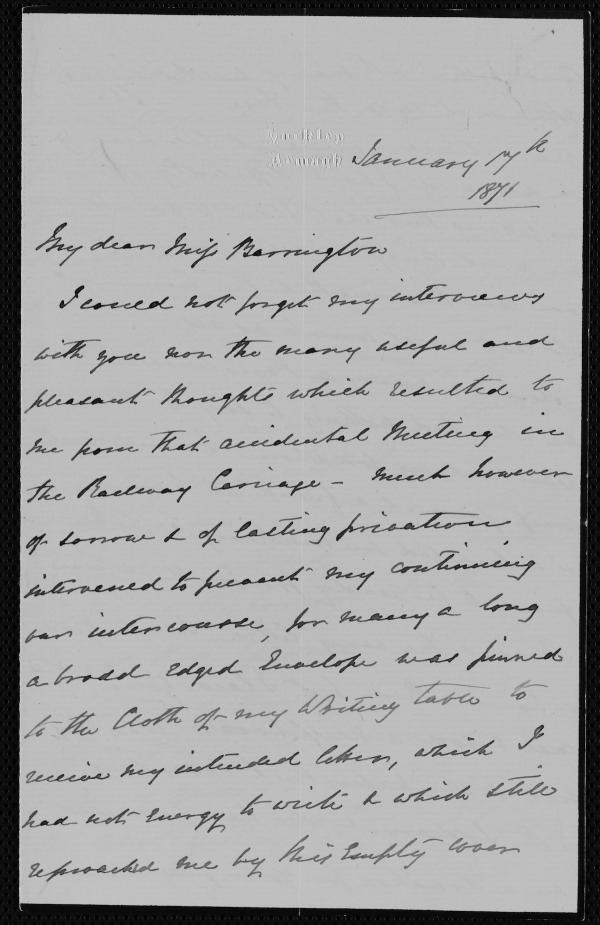 January 17th
1871
My dear Miss Barrington
I could not forget my interviews
with you nor the many useful and
pleasant thoughts which resulted to
me from that accidental Meeting in
the Railway Carriage - much however
of sorrow & of lasting privation
intervened to prevent my continuing
our intercourse, for many a long
a broad edged Envelope was pinned
to the Cloth of my Writing table to
receive my intended letter, which I
had not energy to write & which still
reproached me by this Empty cover